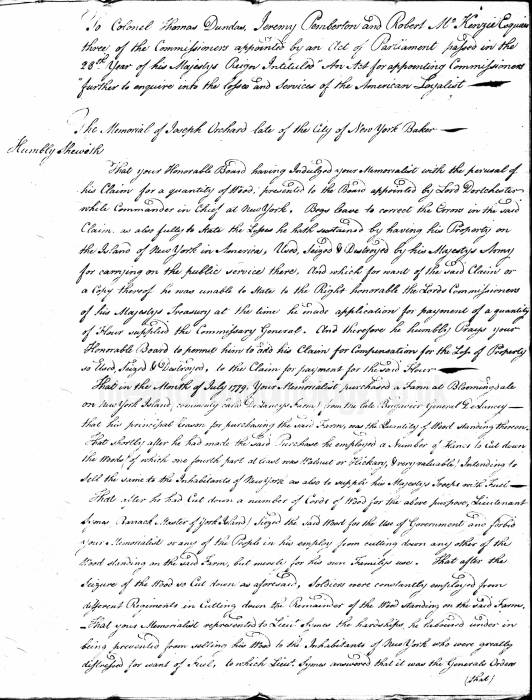 To Colonel Thomas Dundas, Jeremy Pemberton and Robert Mc Kenzie Esquires
three of the Commissioners appointed by an Act of Parliament passed in the
28th Year of his Majestys Reign Intituled "An Act for appointing Commissioners
"further to enquire into the Losses and Services of the American Loyalist —
The Memorial of Joseph Orchard late of the City of New York Baker —
Humbly Sheweth
That your Honorable Board having Indulged your Memorialist with the perusal of
his Claim for a quantity of Wood, presented to the Board appointed by Lord Dorchester
while Commander in Chief at New York. Begs leave to correct the Errors in the said
Claim, as also fully to State the Losses he hath sustained by having his Property on
the Island of New York in America, Used, Seized & Destroyed by his Majestys Army
for carrying on the public service there. And which for want of the said Claim or
a Copy thereof he was unable to State to the Right honorable the Lords Commissioners
of his Majestys Treasury at the time he made application for payment of a quantity
of Flour supplied the Commissary General. And therefore he humbly Prays your
Honorable Board to permit him to add his Claim for Compensation for the Loss of Property
so Used, Seized & Destroyed, to the Claim for payment for the said Flour —
That in the Month of July 1779. Your Memorialist purchased a Farm at Bloomingdale
on New York Island, commonly called DeLanceys Farm from the late Brigadier General DeLancey —
that his principal reason for purchasing the said Farm, was the Quantity of Wood standing thereon.
That shortly after he had made the said Purchase he employed a Number of Hands to Cut down
the Woods (of which one fourth part at least was Walnut or Hickary, & very valuable) Intending to
sell the same to the Inhabitants of New York as also to supply his Majestys Troops with Fuel —
That after he had Cut down a number of Cords of Wood for the above purpose, Lieutenant
Symes (Barrack Master of York Island) Seized the said Wood for the Use of Government and forbid
your Memorialist or any of the People in his employ from cutting down any other of the
Wood standing on the said Farm, but merely for his own Familys use. That after the
Seizure of the Wood so Cut down as aforesaid, Soldiers were constantly employed from
different Regiments in Cutting down the Remainder of the Wood standing on the said Farm.
— That your Memorialist represented to Lieut. Symes the hardships he laboured under in
being prevented from selling his Wood to the Inhabitants of New York who were greatly
distressed for want of Fuel, to which Lieut. Symes answered that it was the Generals Orders
(that)